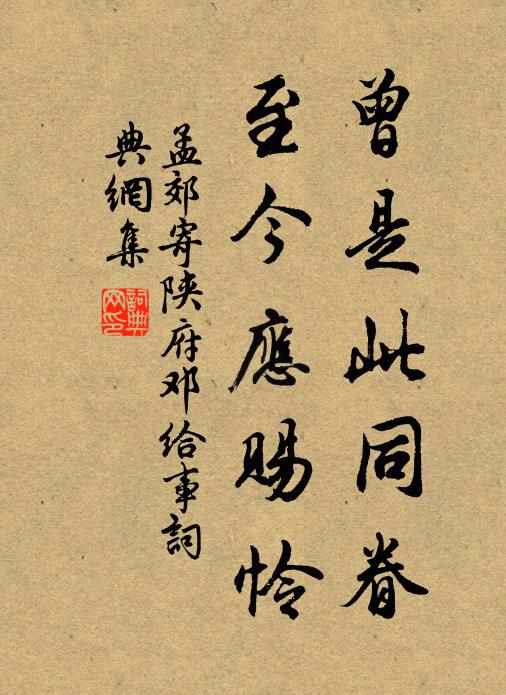 曾是此同眷
至今應賜怜
孟郊寄陝府邓給事詞
典網集
詞典
网印